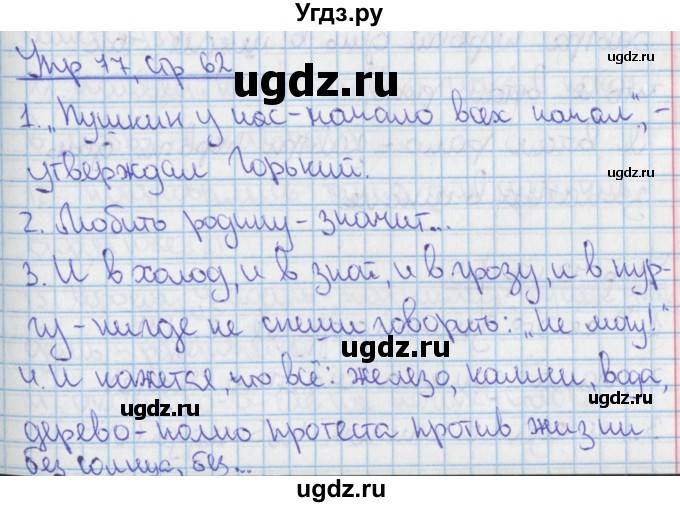 Угдз.ру
Упр 77, стр 62
ugdz.ru
ugdz.ru
1. „Пушкин у нас – начало всех начал", –
утверждал Горький.
ugdz.ru
ugdz.ru
2. Любить родину – значит...
ugdz.ru
3. И в холод, и в зной, и в грозу, и в пур-
гу – нигде не спеши говорить: „Не могу!"
ugdz.ru
ugdz.ru
4. И кажется, что всё: железо, камни, вода,
ugdz.ru
ugdz.ru
дерево – полно протеста против жизни
без солнца, без...
ugdz.ru